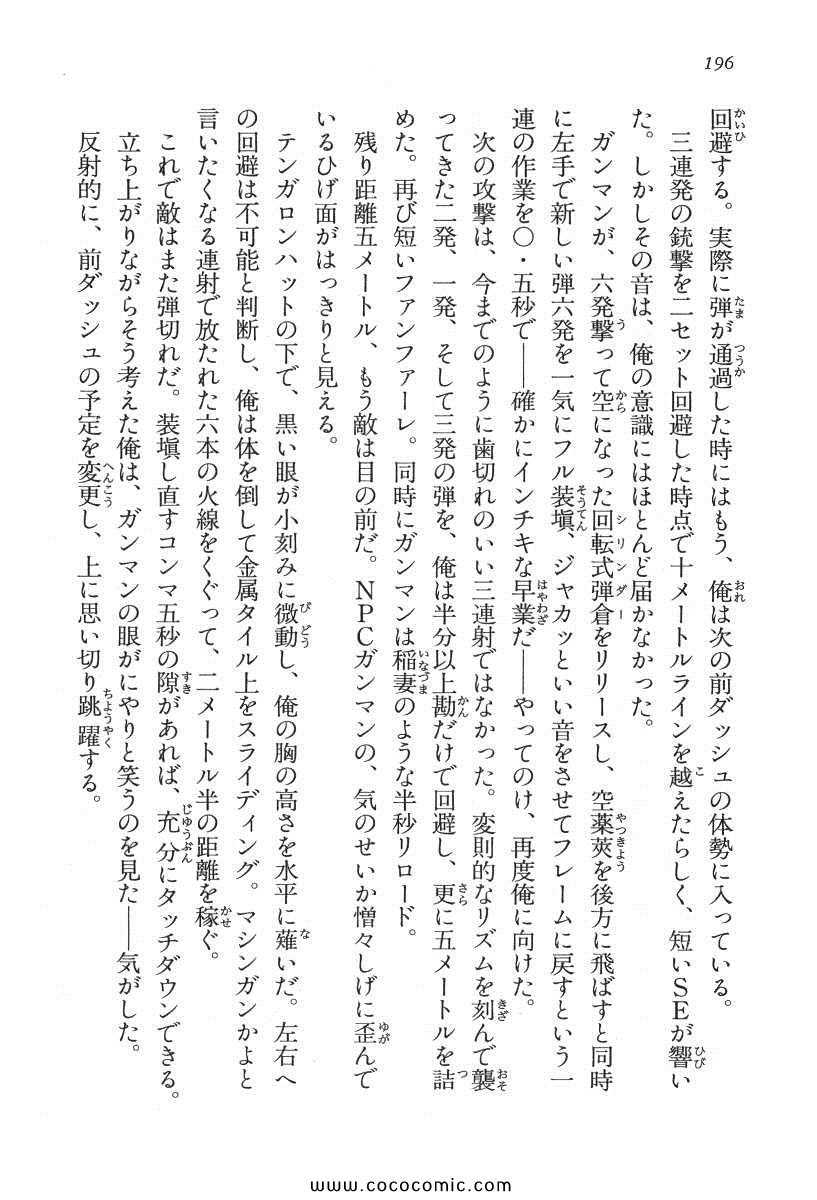 196
回避する。実際に弾が通過した時にはもう、俺は次の前ダッシュの体勢に入っている。
三連発の銃撃を二セット回避した時点で十メートルラインを越えたらしく、短いSEが響い
た。しかしその音は、俺の意識にはほとんど届かなかった。
ガンマンが、六発撃って空になった回転式弾倉をリリースし、空薬莢を後方に飛ばすと同時
に左手で新しい弾六発を一気にフル装塡、ジャカッといい音をさせてフレームに戻すという一
連の作業を〇・五秒で――確かにインチキな早業だ――やってのけ、再度俺に向けた。
次の攻撃は、今までのように歯切れのいい三連射ではなかった。変則的なリズムを刻んで襲
ってきた二発、一発、そして三発の弾を、俺は半分以上勘だけで回避し、更に五メートルを詰
めた。再び短いファンファーレ。同時にガンマンは稲妻のような半秒リロード。
残り距離五メートル、もう敵は目の前だ。NPCガンマンの、気のせいか憎々しげに歪んで
いるひげ面がはっきりと見える。
テンガロンハットの下で、黒い眼が小刻みに微動し、俺の胸の高さを水平に薙いだ。左右へ
の回避は不可能と判断し、俺は体を倒して金属タイル上をスライディング。マシンガンかよと
言いたくなる連射で放たれた六本の火線をくぐって、二メートル半の距離を稼ぐ。
これで敵はまた弾切れだ。装塡し直すコンマ五秒の隙があれば、充分にタッチダウンできる。
立ち上がりながらそう考えた俺は、ガンマンの眼がにやりと笑うのを見た――気がした。
反射的に、前ダッシュの予定を変更し、上に思い切り跳躍する。
www.cococomic.com